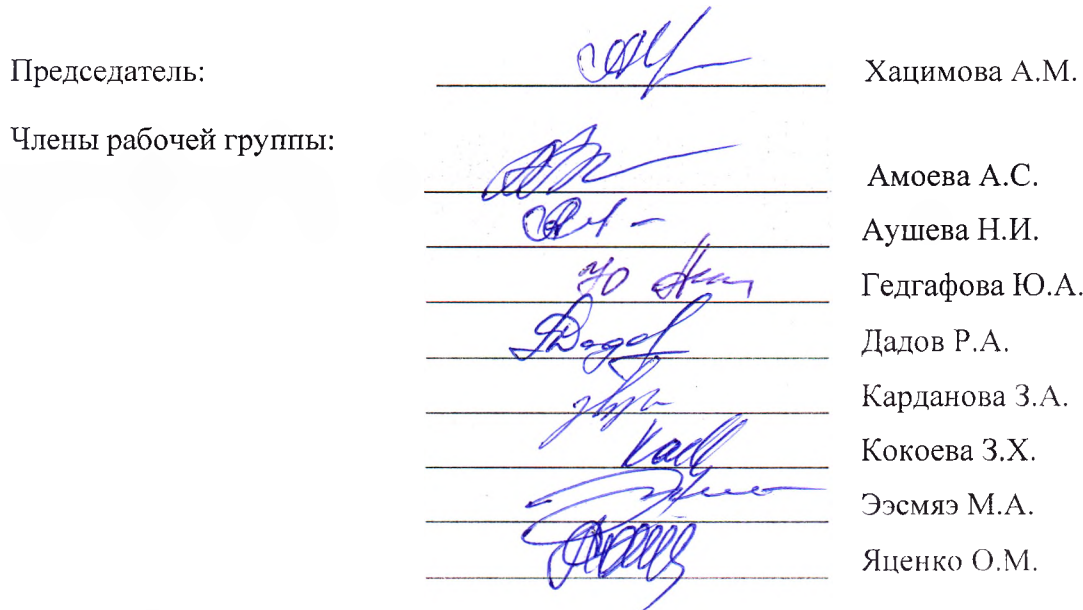 Председатель: Хацимова А.М.
Члены рабочей группы:
Амоева А.С.
Аушева Н.И.
Гедгафова Ю.А.
Дадов Р.А.
Карданова З.А.
Кокоева З.Х.
Ээсмяэ М.А.
Яценко О.М.